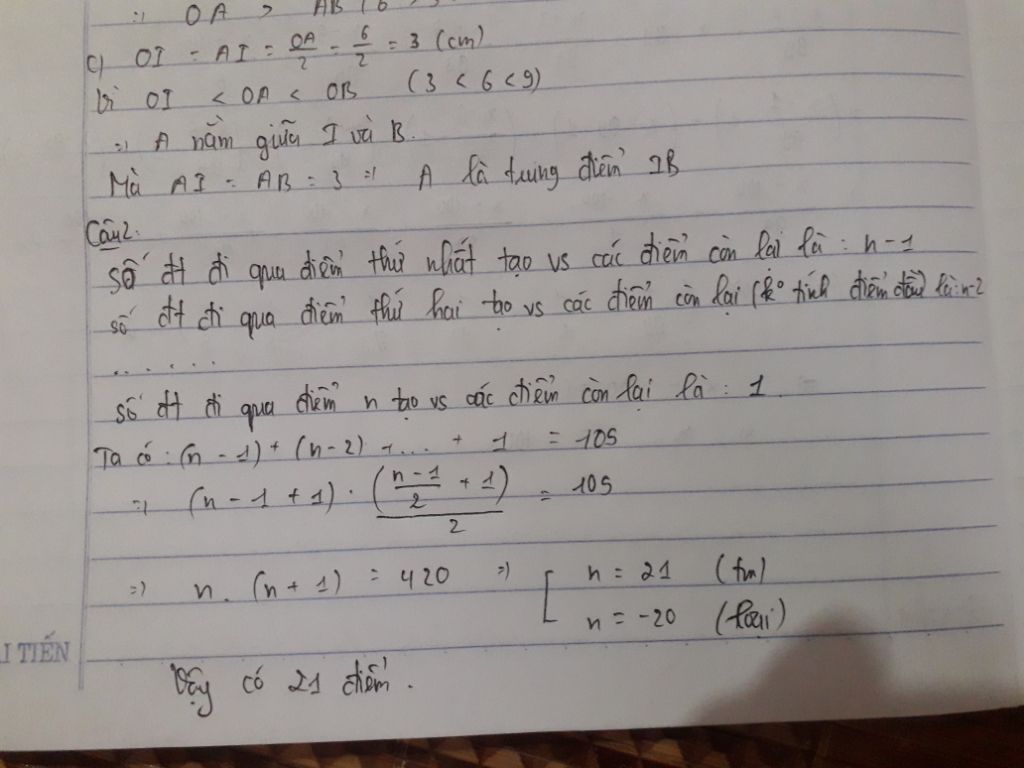 =) OA > AB (6 >
c) OI = AI = OA/2 = 6/2 = 3 (cm)
Vì OI < OA < OB (3 < 6 < 9)
=) A nằm giữa I và B.
Mà AI = AB = 3 =) A là trung điểm IB
Câu 2:
số đt đi qua điểm thứ nhất tạo vs các điểm còn lại là : n-1
số đt đi qua điểm thứ hai tạo vs các điểm còn lại (k° tính điểm đầu) là: n-2
. . . . . .
số đt đi qua điểm n tạo vs các điểm còn lại là : 1
Ta có : (n - 1) + (n - 2) + ... + 1 = 105
=) (n - 1 + 1) . ((n-1)/2 + 1)/2 = 105
=) n . (n + 1) = 420 =) [ n = 21 (tm)
n = -20 (loại)
I TIẾN
Vậy có 21 điểm.